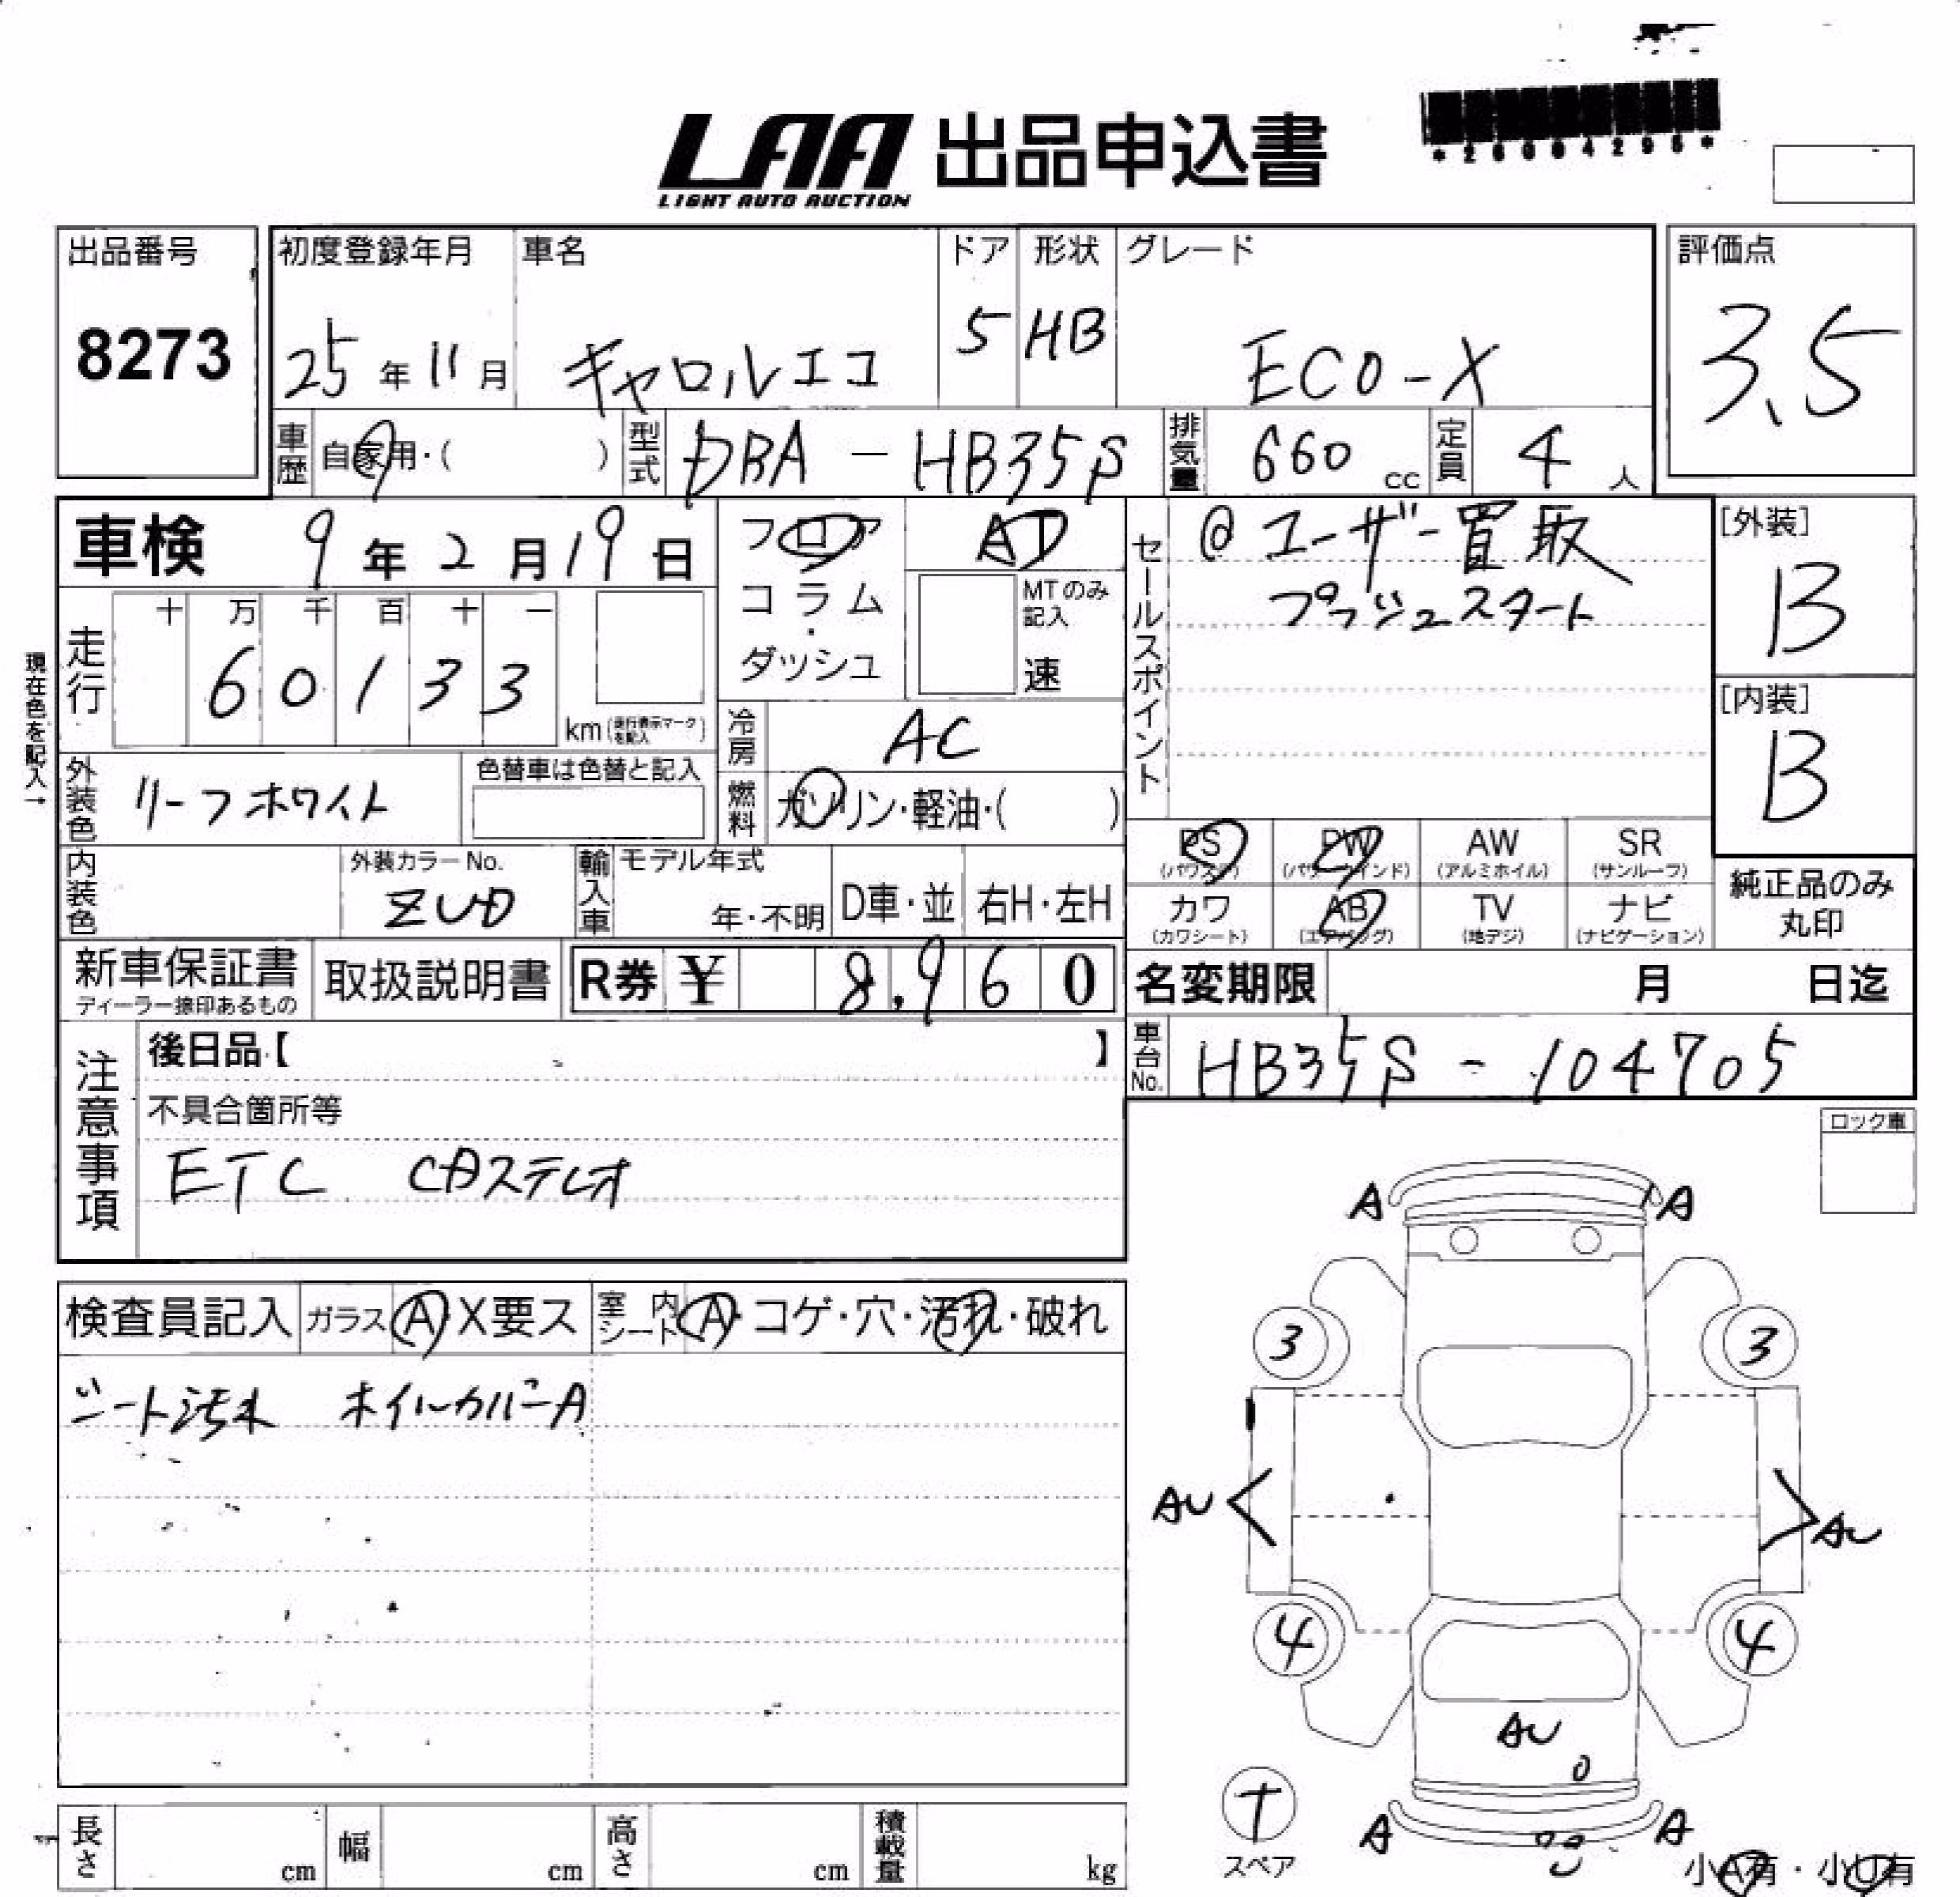 LAA 出品申込書
LIGHT AUTO AUCTION
*26084295*
出品番号
8273
初度登録年月 車名 ドア 形状 グレード
25年11月 キャロルエコ 5 HB ECO-X
評価点
3.5
車歴 自家用・( ) 型式 DBA-HB35S 排気量 660cc 定員 4人
車検 9年2月19日
フロア AT
コラム・ダッシュ
MTのみ記入
速
セールスポイント
@ユーザー買取
プッシュスタート
[外装]
B
[内装]
B
現在色を記入→
走行 十 万 千 百 十 一
6 0 1 3 3
km (走行表示マークを記入)
冷房 AC
外装色 リーフホワイト 色替車は色替と記入
燃料 ガソリン・軽油・( )
PS PW AW SR
(パワステ) (パワーウインド) (アルミホイル) (サンルーフ)
カワ AB TV ナビ
(カワシート) (エアバッグ) (地デジ) (ナビゲーション)
純正品のみ
丸印
内装色 外装カラーNo. 輸入車 モデル年式
ZUD 年・不明 D車・並 右H・左H
新車保証書 取扱説明書 R券 ¥ 8,960
ディーラー捺印あるもの
名変期限 月 日迄
注意事項
後日品【 】
車台No. HB35S-104705
不具合箇所等
ETC CDステレオ
ロック車
検査員記入 ガラス A・X要ス 室内シート A・コゲ・穴・汚れ・破れ
シート汚れ ホイルカバーA
A A
3 3
AU AU
4 4
AU
A A
スペア
小A有・小U有
長さ cm 幅 cm 高さ cm 積載量 kg